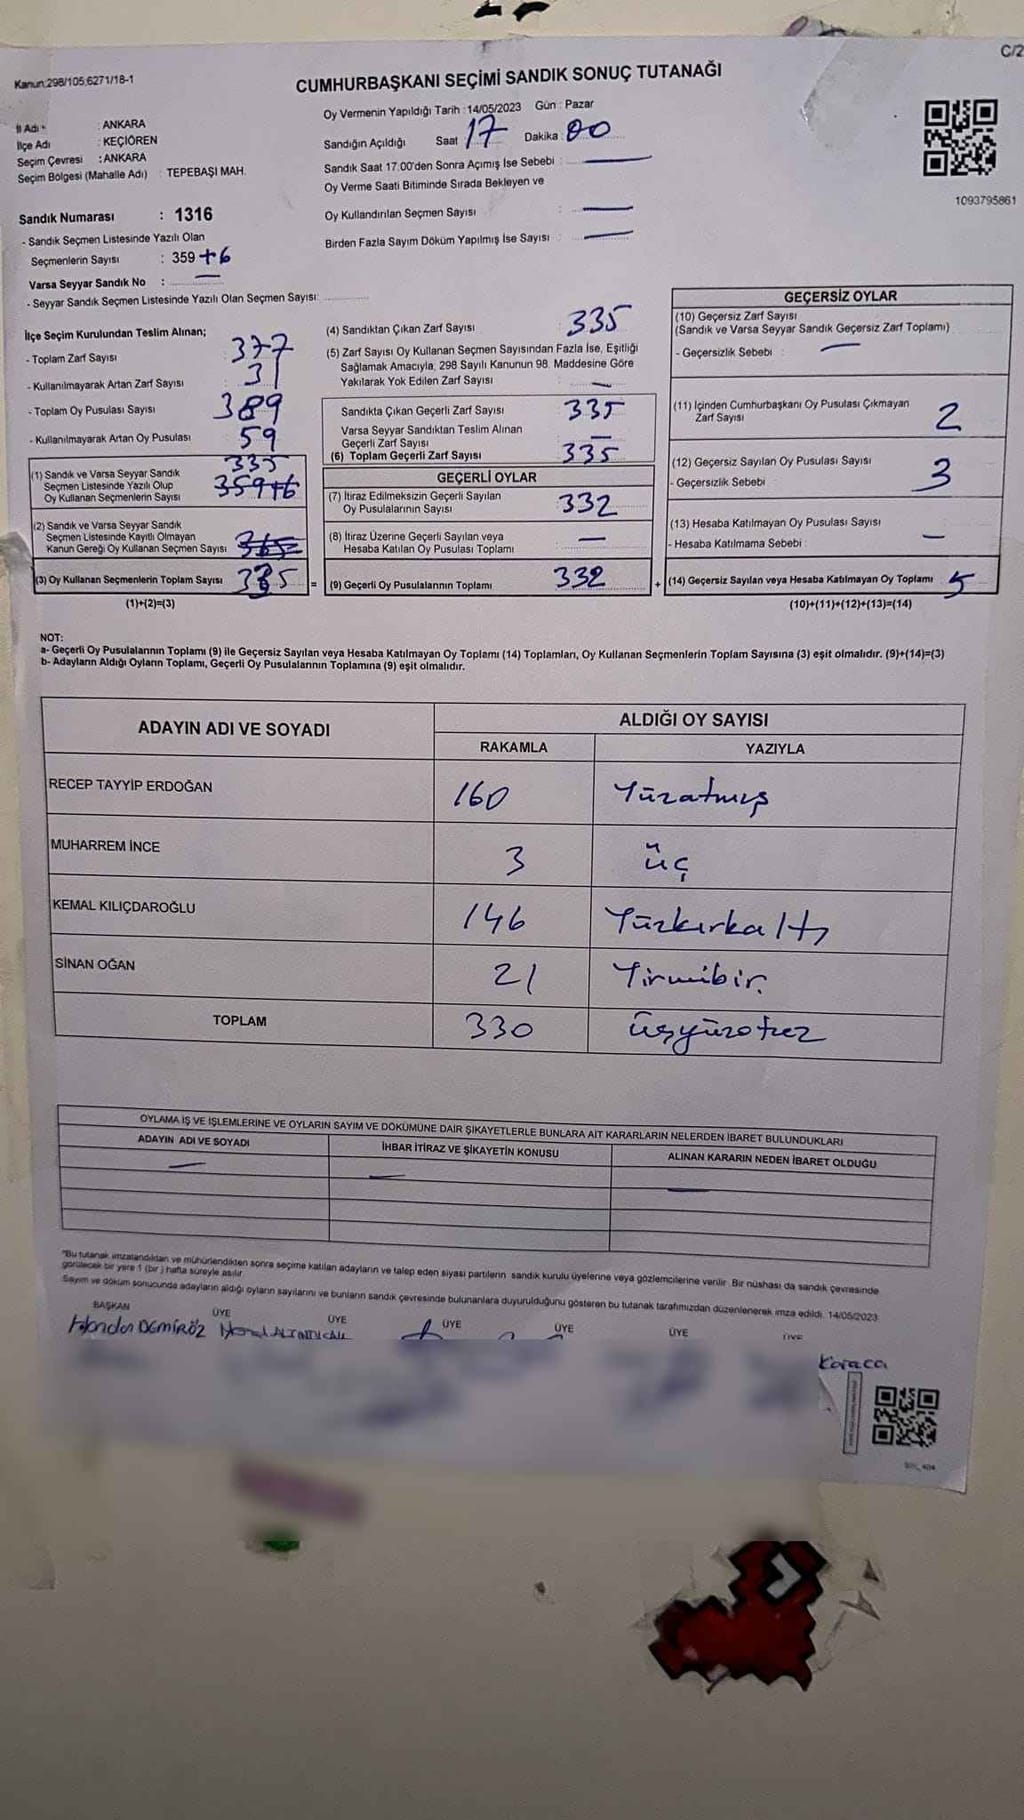 C/2
Kanun:298/105,6271/18-1
CUMHURBAŞKANI SEÇİMİ SANDIK SONUÇ TUTANAĞI
İl Adı : ANKARA
İlçe Adı : KEÇİÖREN
Seçim Çevresi : ANKARA
Seçim Bölgesi (Mahalle Adı) : TEPEBAŞI MAH.
Oy Vermenin Yapıldığı Tarih : 14/05/2023 Gün : Pazar
Sandığın Açıldığı Saat 17 Dakika 00
Sandık Saat 17:00'den Sonra Açımış İse Sebebi : —
Oy Verme Saati Bitiminde Sırada Bekleyen ve
Oy Kullandırılan Seçmen Sayısı : —
Birden Fazla Sayım Döküm Yapılmış İse Sayısı : —
1093795861
Sandık Numarası : 1316
- Sandık Seçmen Listesinde Yazılı Olan
Seçmenlerin Sayısı : 359 +6
Varsa Seyyar Sandık No : —
- Seyyar Sandık Seçmen Listesinde Yazılı Olan Seçmen Sayısı:
İlçe Seçim Kurulundan Teslim Alınan;
- Toplam Zarf Sayısı 377
- Kullanılmayarak Artan Zarf Sayısı 31
- Toplam Oy Pusulası Sayısı 389
- Kullanılmayarak Artan Oy Pusulası 59
335
(1) Sandık ve Varsa Seyyar Sandık
Seçmen Listesinde Yazılı Olup
Oy Kullanan Seçmenlerin Sayısı 359+6
(2) Sandık ve Varsa Seyyar Sandık
Seçmen Listesinde Kayıtlı Olmayan
Kanun Gereği Oy Kullanan Seçmen Sayısı 365
(3) Oy Kullanan Seçmenlerin Toplam Sayısı 335 =
(1)+(2)=(3)
(4) Sandıktan Çıkan Zarf Sayısı 335
(5) Zarf Sayısı Oy Kullanan Seçmen Sayısından Fazla İse, Eşitliği
Sağlamak Amacıyla, 298 Sayılı Kanunun 98. Maddesine Göre
Yakılarak Yok Edilen Zarf Sayısı —
Sandıkta Çıkan Geçerli Zarf Sayısı 335
Varsa Seyyar Sandıktan Teslim Alınan
Geçerli Zarf Sayısı —
(6) Toplam Geçerli Zarf Sayısı 335
GEÇERLİ OYLAR
(7) İtiraz Edilmeksizin Geçerli Sayılan
Oy Pusulalarının Sayısı 332
(8) İtiraz Üzerine Geçerli Sayılan veya
Hesaba Katılan Oy Pusulası Toplamı —
(9) Geçerli Oy Pusulalarının Toplamı 332 +
GEÇERSİZ OYLAR
(10) Geçersiz Zarf Sayısı
(Sandık ve Varsa Seyyar Sandık Geçersiz Zarf Toplamı)
- Geçersizlik Sebebi : —
(11) İçinden Cumhurbaşkanı Oy Pusulası Çıkmayan
Zarf Sayısı 2
(12) Geçersiz Sayılan Oy Pusulası Sayısı
- Geçersizlik Sebebi 3
(13) Hesaba Katılmayan Oy Pusulası Sayısı
- Hesaba Katılmama Sebebi : —
(14) Geçersiz Sayılan veya Hesaba Katılmayan Oy Toplamı 5
(10)+(11)+(12)+(13)=(14)
NOT:
a- Geçerli Oy Pusulalarının Toplamı (9) ile Geçersiz Sayılan veya Hesaba Katılmayan Oy Toplamı (14) Toplamları, Oy Kullanan Seçmenlerin Toplam Sayısına (3) eşit olmalıdır. (9)+(14)=(3)
b- Adayların Aldığı Oyların Toplamı, Geçerli Oy Pusulalarının Toplamına (9) eşit olmalıdır.
ADAYIN ADI VE SOYADI ALDIĞI OY SAYISI
RAKAMLA YAZIYLA
RECEP TAYYİP ERDOĞAN 160 Yüzatmış
MUHARREM İNCE 3 üç
KEMAL KILIÇDAROĞLU 146 Yüzkırkaltı
SİNAN OĞAN 21 Yirmibir.
TOPLAM 330 üçyüzotuz
OYLAMA İŞ VE İŞLEMLERİNE VE OYLARIN SAYIM VE DÖKÜMÜNE DAİR ŞİKAYETLERLE BUNLARA AİT KARARLARIN NELERDEN İBARET BULUNDUKLARI
ADAYIN ADI VE SOYADI İHBAR İTİRAZ VE ŞİKAYETİN KONUSU ALINAN KARARIN NEDEN İBARET OLDUĞU
— — —
"Bu tutanak imzalandıktan ve mühürlendikten sonra seçime katılan adayların ve talep eden siyasi partilerin sandık kurulu üyelerine veya gözlemcilerine verilir. Bir nüshası da sandık çevresinde
görülecek bir yere 1 (bir) hafta süreyle asılır.
Sayım ve döküm sonucunda adayların aldığı oyların sayılarını ve bunların sandık çevresinde bulunanlara duyurulduğunu gösteren bu tutanak tarafımızdan düzenlenerek imza edildi. 14/05/2023
BAŞKAN ÜYE ÜYE ÜYE ÜYE ÜYE ÜYE
DEMİRÖZ
Karaca